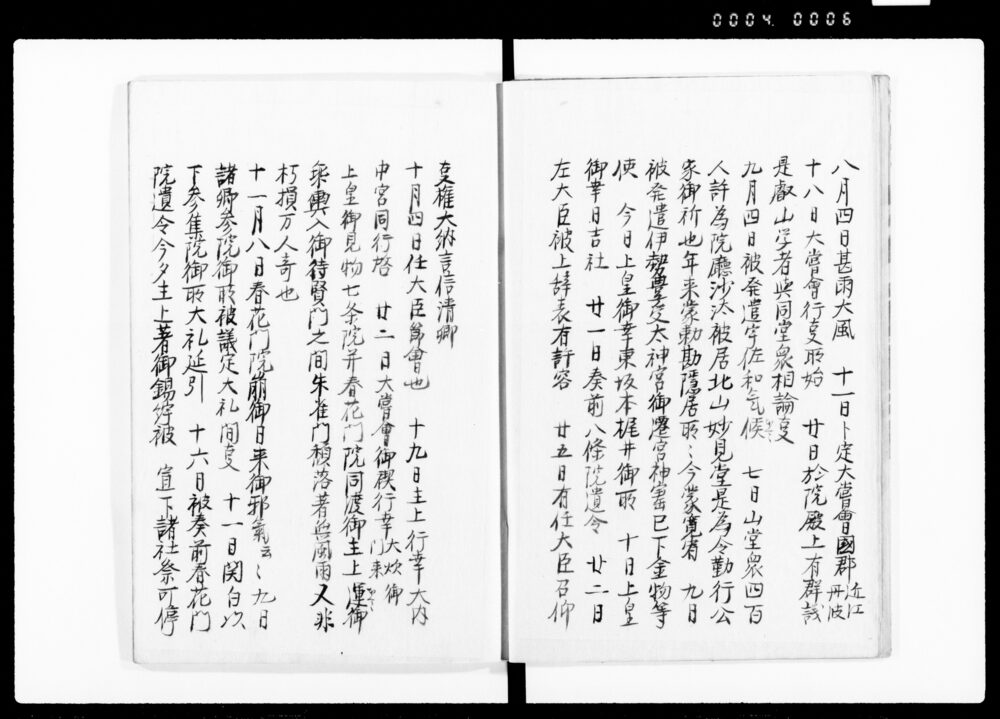 0004. 0006
八月四日甚雨大風　十一日卜定大嘗會國郡近江丹波
十八日大嘗會行事所始　廿日於院殿上有群議
是叡山学者与同堂衆相論事
九月四日被発遣宇佐和氣使　七日山堂衆四百
人許為院廳沙汰被居北山妙見堂是為令勤行公
家御祈也年来蒙勅勘隠居所〻今蒙寛宥　九日
被発遣伊勢豊受太神宮御遷宮神寳已下金物等
使　今日上皇御幸東坂本梶井御所　十日上皇
御幸日吉社　廿一日奏前八條院遺令　廿二日
左大臣被上辞表有許容　廿五日有任大臣召仰
事権大納言信清卿
十月四日任大臣節會也　十九日主上行幸大内
中宮同行啓　廿二日大嘗會御禊行幸大炊御門末
上皇御見物七条院并春花門院同渡御主上還御
乗輿入御待賢門之間朱雀門頽落者無風雨又非
朽損万人奇也
十一月八日春花門院崩御日来御邪氣云〻九日
諸卿参院御所被議定大礼間事　十一日関白以
下参集院御所大礼延引　十六日被奏前春花門
院遺令今夕主上著御錫紵被　宣下諸社祭可停